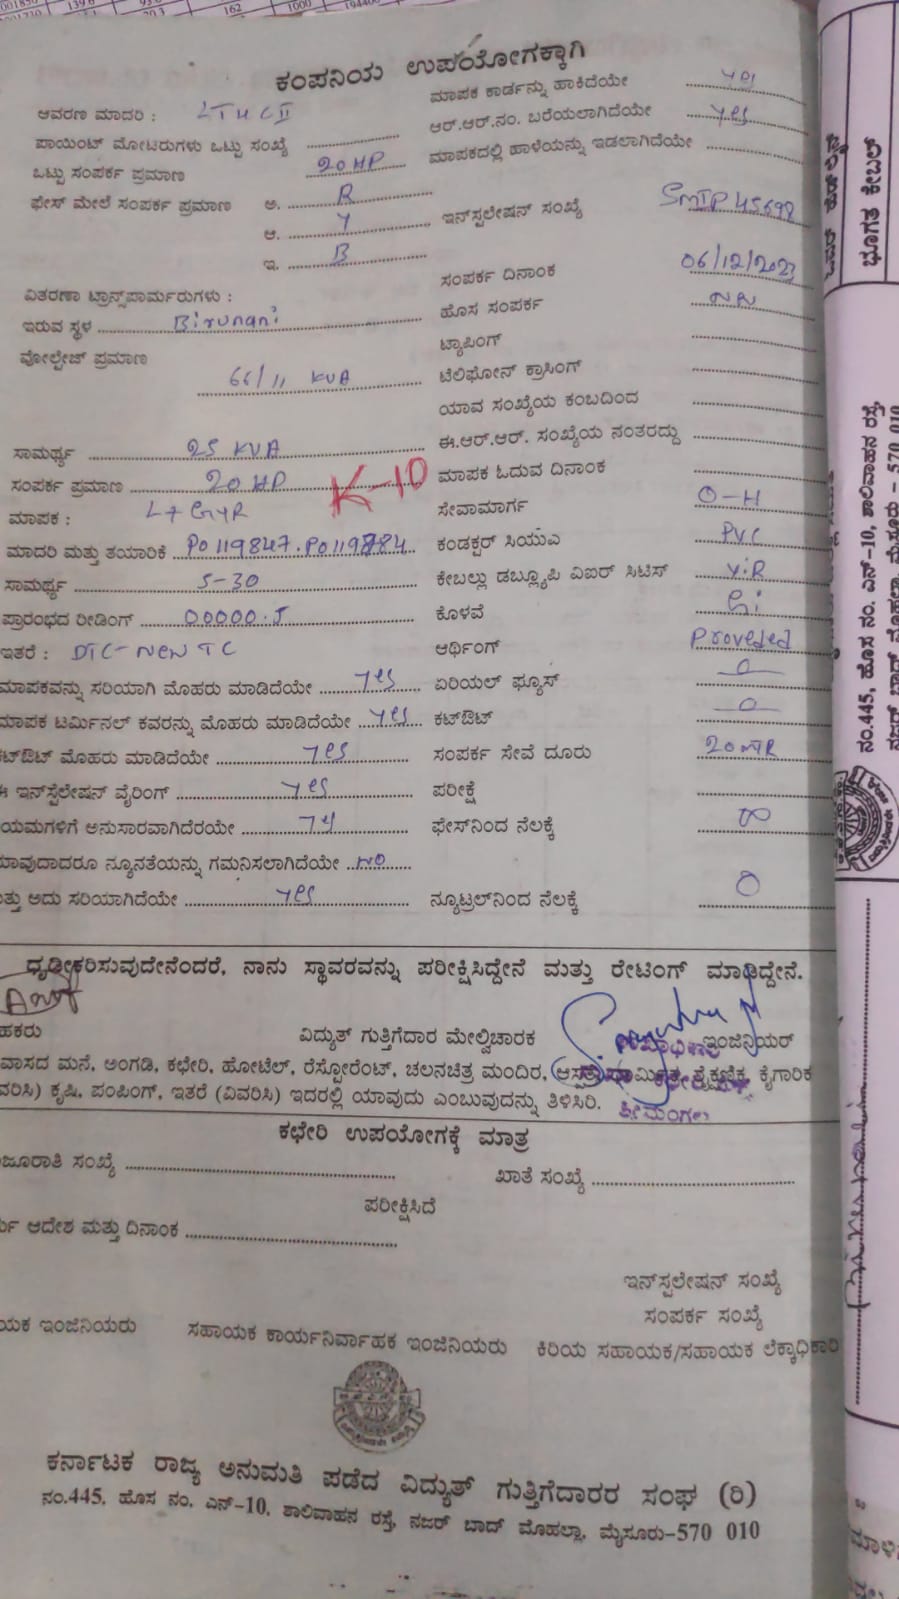 ಕಂಪನಿಯ ಉಪಯೋಗಕ್ಕಾಗಿ
ಆವರಣ ಮಾದರಿ :
ಮಾಪಕ ಕಾರ್ಡನ್ನು ಹಾಕಿದೆಯೇ yes
ಪಾಯಿಂಟ್ ಮೋಟರುಗಳು ಒಟ್ಟು ಸಂಖ್ಯೆ
ಆರ್.ಆರ್.ನಂ. ಬರೆಯಲಾಗಿದೆಯೇ yes
ಒಟ್ಟು ಸಂಪರ್ಕ ಪ್ರಮಾಣ 20 HP
ಮಾಪಕದಲ್ಲಿ ಹಾಳೆಯನ್ನು ಇಡಲಾಗಿದೆಯೇ
ಫೇಸ್ ಮೇಲೆ ಸಂಪರ್ಕ ಪ್ರಮಾಣ ಅ. R
ಆ. Y
ಇನ್‌ಸ್ಟಲೇಷನ್ ಸಂಖ್ಯೆ SMTP 45698
ಇ. B
ಸಂಪರ್ಕ ದಿನಾಂಕ 06/12/2023
ವಿತರಣಾ ಟ್ರಾನ್ಸ್‌ಪಾರ್ಮರುಗಳು :
ಹೊಸ ಸಂಪರ್ಕ
ಇರುವ ಸ್ಥಳ Birunani
ಟ್ಯಾಪಿಂಗ್
ವೋಲ್ಟೇಜ್ ಪ್ರಮಾಣ 66/11 KVA
ಟೆಲಿಫೋನ್ ಕ್ರಾಸಿಂಗ್
ಯಾವ ಸಂಖ್ಯೆಯ ಕಂಬದಿಂದ
ಸಾಮರ್ಥ್ಯ 25 KVA
ಈ.ಆರ್.ಆರ್. ಸಂಖ್ಯೆಯ ನಂತರದ್ದು
ಸಂಪರ್ಕ ಪ್ರಮಾಣ 20 HP K-10
ಮಾಪಕ ಓದುವ ದಿನಾಂಕ
ಮಾಪಕ : L+GYR
ಸೇವಾಮಾರ್ಗ O-H
ಮಾದರಿ ಮತ್ತು ತಯಾರಿಕೆ
ಕಂಡಕ್ಟರ್ ಸಿಯುಎ PVC
ಸಾಮರ್ಥ್ಯ 5-30
ಕೇಬಲ್ಲು ಡಬ್ಲ್ಯೂಪಿ ವಿಐರ್ ಸಿಟಿಸ್ V.R
ಪ್ರಾರಂಭದ ರೀಡಿಂಗ್ 00000.5
ಕೊಳವೆ Gi
ಇತರೆ : DTC-New TC
ಅರ್ಥಿಂಗ್ Proveded
ಮಾಪಕವನ್ನು ಸರಿಯಾಗಿ ಮೊಹರು ಮಾಡಿದೆಯೇ yes
ಏರಿಯಲ್ ಫ್ಯೂಸ್
ಮಾಪಕ ಟರ್ಮಿನಲ್ ಕವರನ್ನು ಮೊಹರು ಮಾಡಿದೆಯೇ yes
ಕಟ್‌ಔಟ್
ಕಟ್‌ಔಟ್ ಮೊಹರು ಮಾಡಿದೆಯೇ yes
ಸಂಪರ್ಕ ಸೇವೆ ದೂರು 20 MTR
ಈ ಇನ್‌ಸ್ಟಲೇಷನ್ ವೈರಿಂಗ್ yes
ಪರೀಕ್ಷೆ
ಯಮಗಳಿಗೆ ಅನುಸಾರವಾಗಿದೆರಯೇ
ಫೇಸ್‌ನಿಂದ ನೆಲಕ್ಕೆ ∞
ಯಾವುದಾದರೂ ನ್ಯೂನತೆಯನ್ನು ಗಮನಿಸಲಾಗಿದೆಯೇ NO
ತ್ತು ಅದು ಸರಿಯಾಗಿದೆಯೇ yes
ನ್ಯೂಟ್ರಲ್‌ನಿಂದ ನೆಲಕ್ಕೆ 0
ಧೃಡೀಕರಿಸುವುದೇನೆಂದರೆ, ನಾನು ಸ್ಥಾವರವನ್ನು ಪರೀಕ್ಷಿಸಿದ್ದೇನೆ ಮತ್ತು ರೇಟಿಂಗ್ ಮಾಡಿದ್ದೇನೆ.
ಹಕರು ವಿದ್ಯುತ್ ಗುತ್ತಿಗೆದಾರ ಮೇಲ್ವಿಚಾರಕ ಇಂಜಿನಿಯರ್
ವಾಸದ ಮನೆ, ಅಂಗಡಿ, ಕಛೇರಿ, ಹೋಟೆಲ್, ರೆಸ್ಟೋರೆಂಟ್, ಚಲನಚಿತ್ರ ಮಂದಿರ, ಶೈಕ್ಷಣಿಕ, ಕೈಗಾರಿಕ
ವರಿಸಿ) ಕೃಷಿ, ಪಂಪಿಂಗ್, ಇತರೆ (ವಿವರಿಸಿ) ಇದರಲ್ಲಿ ಯಾವುದು ಎಂಬುವುದನ್ನು ತಿಳಿಸಿರಿ.
ಶ್ರೀಮಂಗಲ
ಕಛೇರಿ ಉಪಯೋಗಕ್ಕೆ ಮಾತ್ರ
ಜೂರಾತಿ ಸಂಖ್ಯೆ ಖಾತೆ ಸಂಖ್ಯೆ
ಪರೀಕ್ಷಿಸಿದೆ
ಆದೇಶ ಮತ್ತು ದಿನಾಂಕ
ಇನ್‌ಸ್ಟಲೇಷನ್ ಸಂಖ್ಯೆ
ಸಂಪರ್ಕ ಸಂಖ್ಯೆ
ಯಕ ಇಂಜಿನಿಯರು ಸಹಾಯಕ ಕಾರ್ಯನಿರ್ವಾಹಕ ಇಂಜಿನಿಯರು ಕಿರಿಯ ಸಹಾಯಕ/ಸಹಾಯಕ ಲೆಕ್ಕಾಧಿಕಾರಿ
ಕರ್ನಾಟಕ ರಾಜ್ಯ ಅನುಮತಿ ಪಡೆದ ವಿದ್ಯುತ್ ಗುತ್ತಿಗೆದಾರರ ಸಂಘ (ರಿ)
ನಂ.445, ಹೊಸ ನಂ, ಎನ್-10, ಶಾಲಿವಾಹನ ರಸ್ತೆ, ನಜರ್ ಬಾದ್ ಮೊಹಲ್ಲಾ, ಮೈಸೂರು-570 010
ಭೂಗತ ಕೇಬಲ್
ನಂ.445, ಹೊಸ ನಂ. ಎನ್-10, ಶಾಲಿವಾಹನ ರಸ್ತೆ,